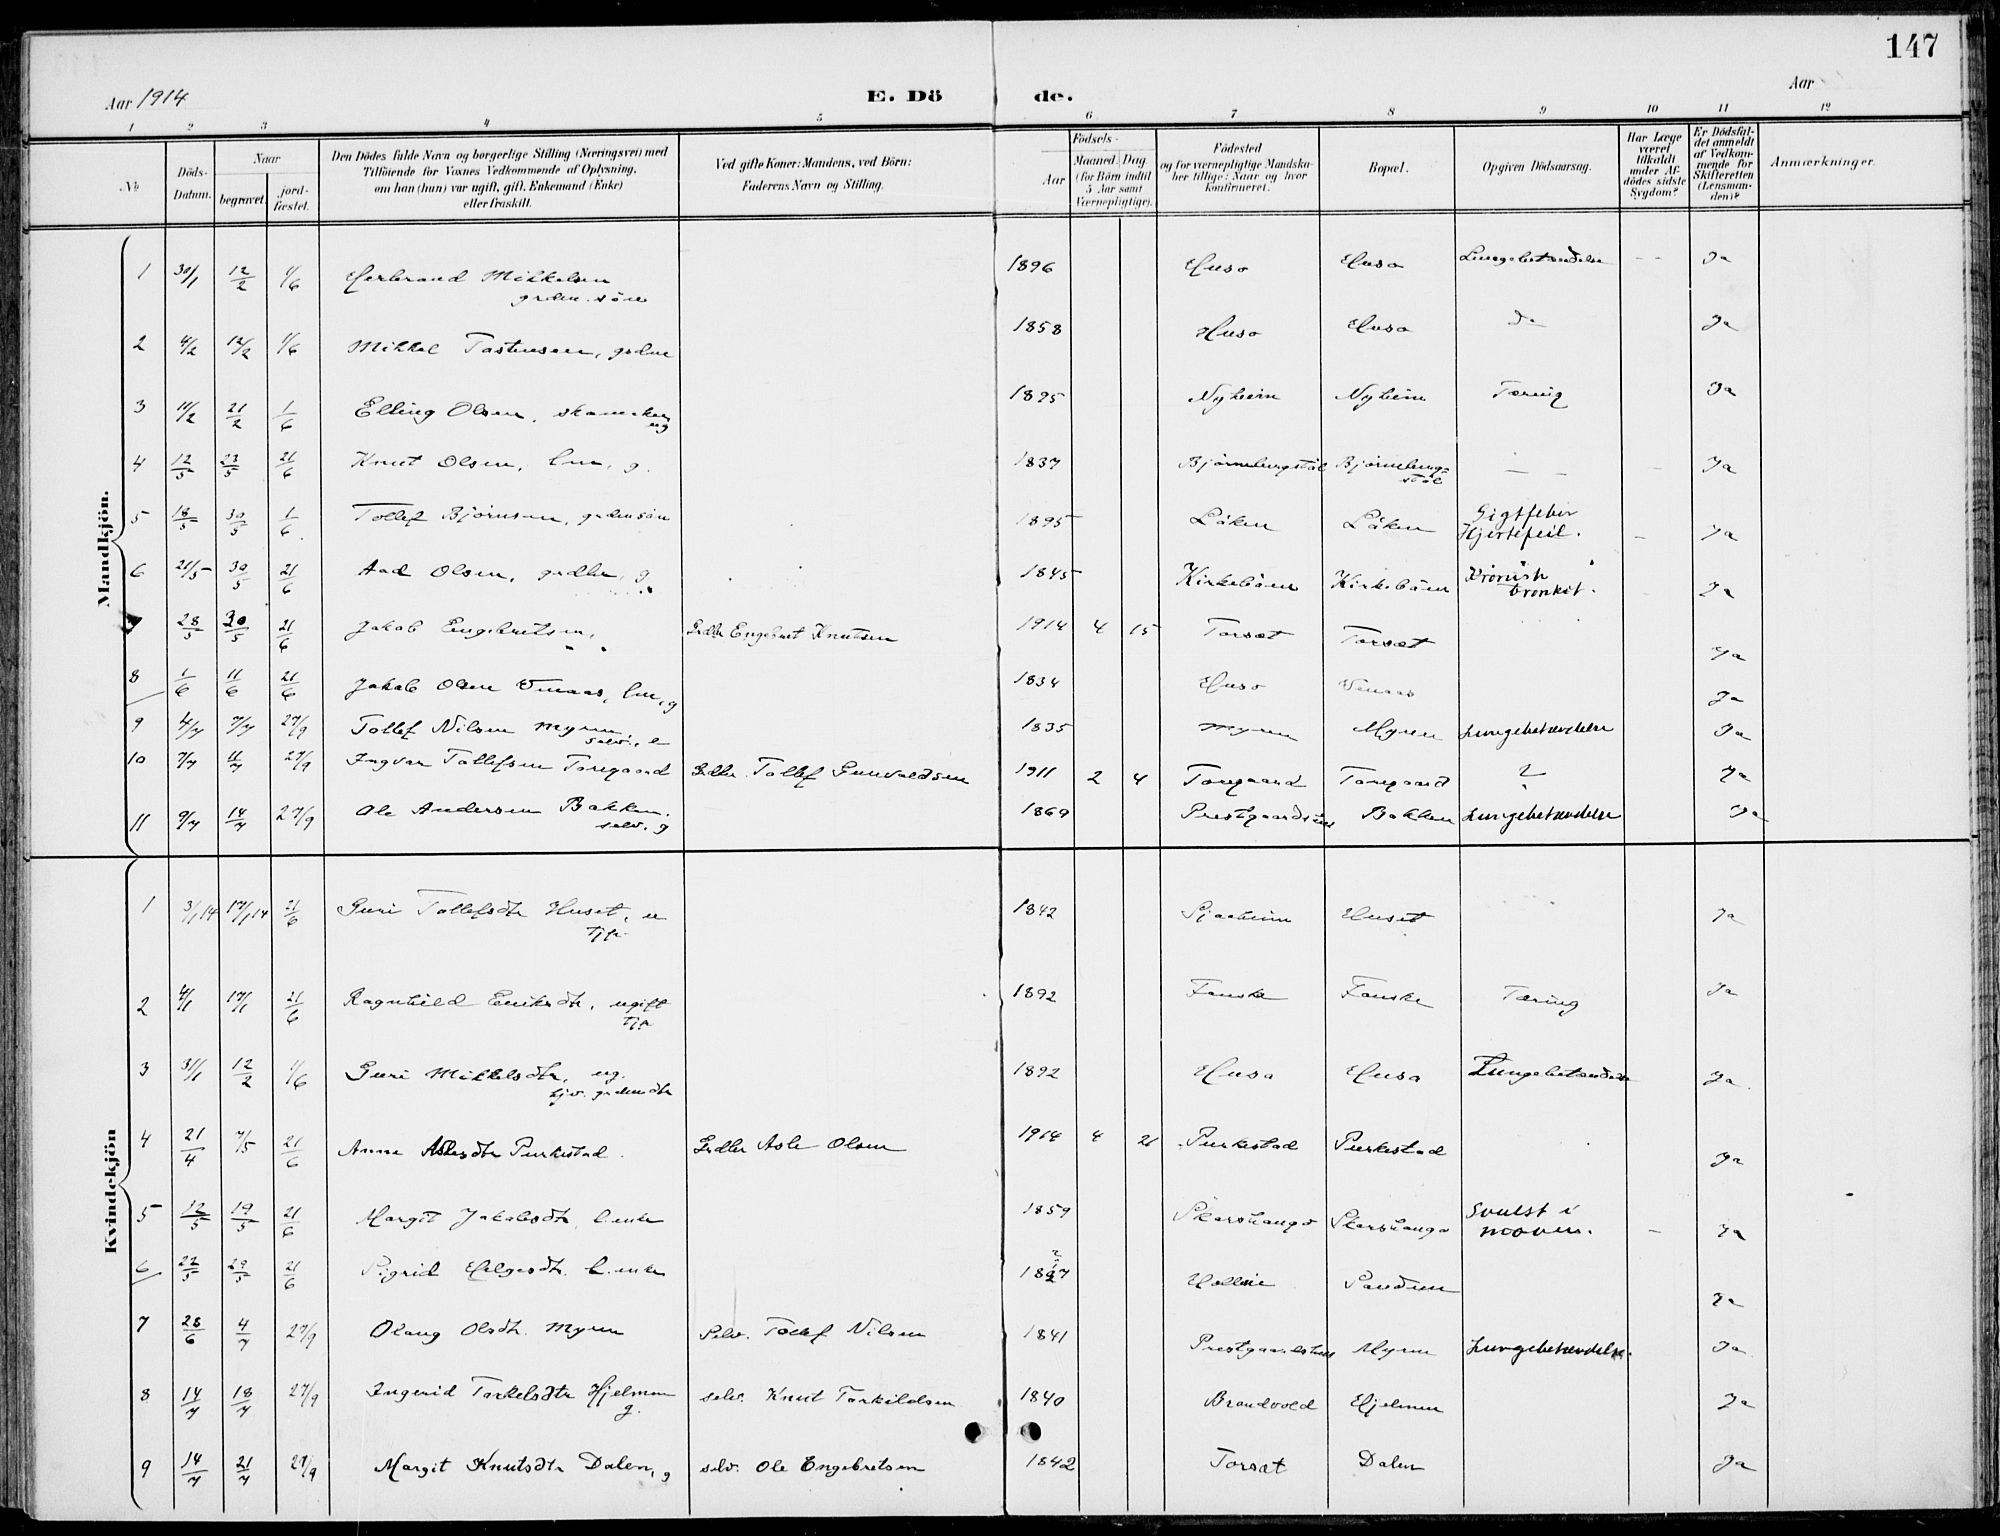 147
Aar 1914
E. Dö de.
Aar
1 2 3 4 5 6 7 8 9 10 11 12
No
Döds-Datum.
Naar
begravet.
jord-fæstet.
Den Dödes fulde Navn og borgerlige Stilling (Næringsvei) med
Tilföiende for Voxnes Vedkommende af Oplysning,
om han (hun) var ugift, gift, Enkemand (Enke)
eller fraskilt.
Ved gifte Koner: Mandens, ved Börn:
Faderens Navn og Stilling.
Födsels-
Aar
Maaned. Dag
(for Börn indtil
5 Aar samt
Værnepligtige).
Födested
og for værnepligtige Mandska-
ber tillige: Naar og hvor
konfirmeret.
Bopæl.
Opgiven Dödsaarsag.
Har Læge
været
tilkaldt
under Af-
dödes sidste
Sygdom?
Er Dödsfal-
det anmeldt
af Vedkom-
mende for
Skifteretten
(Lensman-
den)?
Anmærkninger.
Mandkjön.
1 30/1 12/2 1/6 Herbrand Mikkelsen 1896 Huso Huso Lungebetændelse -- Ja
grdm. sön
2 4/2 12/2 1/6 Mikkel Tostensen, grdm 1858 Huso Huso do Ja
3 11/2 21/2 1/6 Elling Olsen, 1895 Nyheim Nyheim Tæring Ja
ug
4 12/5 23/5 21/6 Knut Olsen, lm, g. 1837 Ja
5 18/5 30/5 1/6 Tollef Björnsen, grdm sön 1895 Låken Låken Gigtfeber
Hjertefeil. - Ja
6 21/5 30/5 21/6 Aad Olsen, grdbr, g 1845 Kirkeböen Kirkeböen Kronisk
bronkit. Ja
28/5 30/5 21/6 Jakob Engebretsen, Grdbr Engebret Knutsen 1914 4 15 Torset Torset Ja
8 1/6 11/6 21/6 Jakob Olsen Venaas, lm, g 1834 Huso Venaas Ja
9 4/7 7/7 27/9 Tollef Nilsen Myren 1835 Myren Myren Lungebetændelse Ja
selv., e
10 7/7 11/7 27/9 Ingvar Tollefsen Toregaard Grdbr. Tollef Gunvaldsen 1911 2 4 Toregaard Toregaard ? Ja
11 9/7 14/7 27/9 Ole Andersen Bakken. 1869 Prestgaardshus Bakken Lungebetændelse Ja
selv. g
Kvindekjön
1 3/1 14 17/1 14 21/6 Guri Tollefsdtr Huset, 1842 Huset Ja
2 4/1 17/1 21/6 Ragnhild Eriksdtr, ugift 1892 Fauske Fauske Tæring Ja
3 31/1 12/2 1/6 Guri Mikkelsdtr, ug. 1892 Huso Huso Lungebetændelse Ja
grdmdtr
4 21/4 7/5 21/6 Anne Aslesdtr Purkestad. Grdbr Asle Olsen 1914 4 21 Purkestad Purkestad Ja
5 12/5 19/5 21/6 Margit Jakobsdtr l.enke 1859 Skarshaugo Skarshaugo Svulst i
maven. - Ja
6 22/5 29/5 21/6 Sigrid Helgesdtr l.enke Ja
7 28/6 4/7 27/9 Olaug Olsdtr. Myren Selv. Tollef Nilsen 1841 Prestgaardshus Myren Lungebetændelse. Ja
8 14/7 18/7 27/9 Ingerid Torkelsdtr Hjelmen selv. Knut Torkildsen 1840 Brandvold Hjelmen Ja
g.
9 14/7 21/7 27/9 Margit Knutsdtr Dalen, g selv. Ole Engebretsen 1842 Torset Dalen Ja